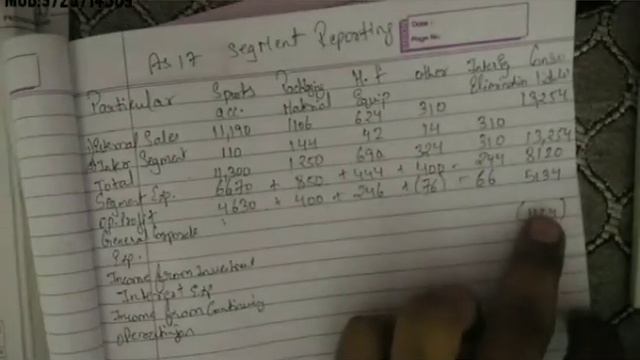 AS 17 Segment Reporting
Date :
Page No.
Particular Sports Packagig H.F other Inter Seg Conso
acc. Material Equip Elimination lidated
External Sales 11,190 1106 624 310 13,254
Inter Segment 110 144 42 14 310
Total 11,300 1250 690 324 310 13,254
Segment Exp. 6670 + 850 + 444 + 400 - 244 8120
Op. Profit 4630 + 400 + 246 + (76) - 66 5134
General Corporate
Exp.
Income from Investment
Interest Exp
Income from Continuing
operation